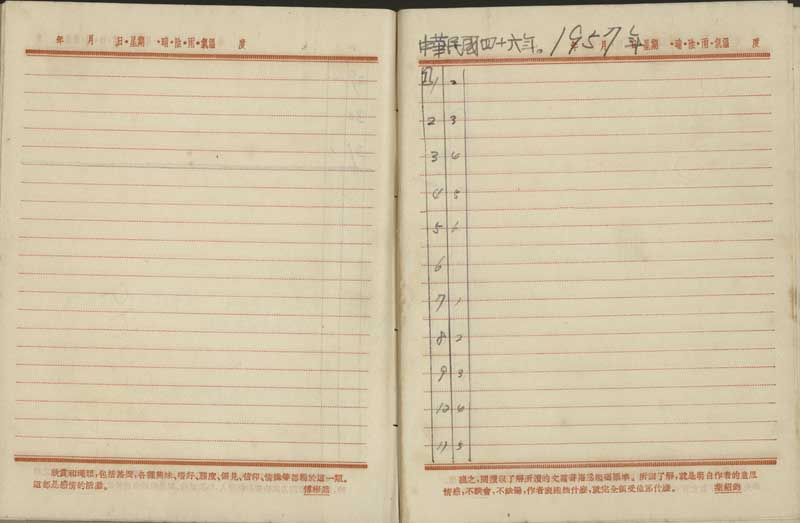 年 月 日·星期 ·晴·陰·雨·氣溫 度
欣賞和理想,包括甚潤,各種興味、嗜好、態度、偏見、信仰、情操等都歸於這一類。
這都是感情的活動。
中華民國四十六年。1957年
月 星期 ·晴·陰·雨·氣溫 度
月1 2
2 3
3 4
4 5
5 1
6
7 1
8 2
9 3
10 4
11 5
總之,閱讀以了解所讀的文篇書籍為起碼標準。所謂了解,就是明白作者的意思
情感,不誤會,不缺漏,作者表達些什麼,就完全領受他那什麼。 葉紹鈞